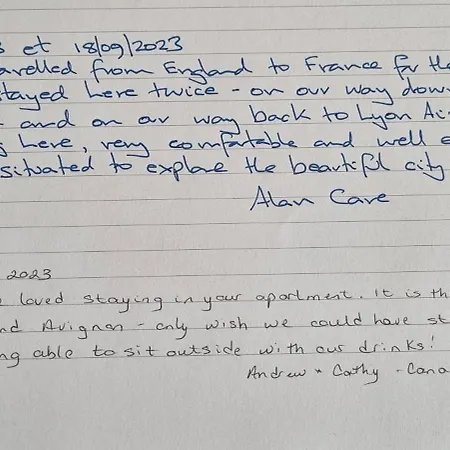 et 18/09/2023
avelled from England to France for the
stayed here twice - on our way down
and on our way back to Lyon
here, very comfortable and well
situated to explore the beautiful city
Alan Care
2023
loved staying in your apartment. It is
Avignon - only wish we could have
able to sit outside with our drinks!
Andrew & Cathy -